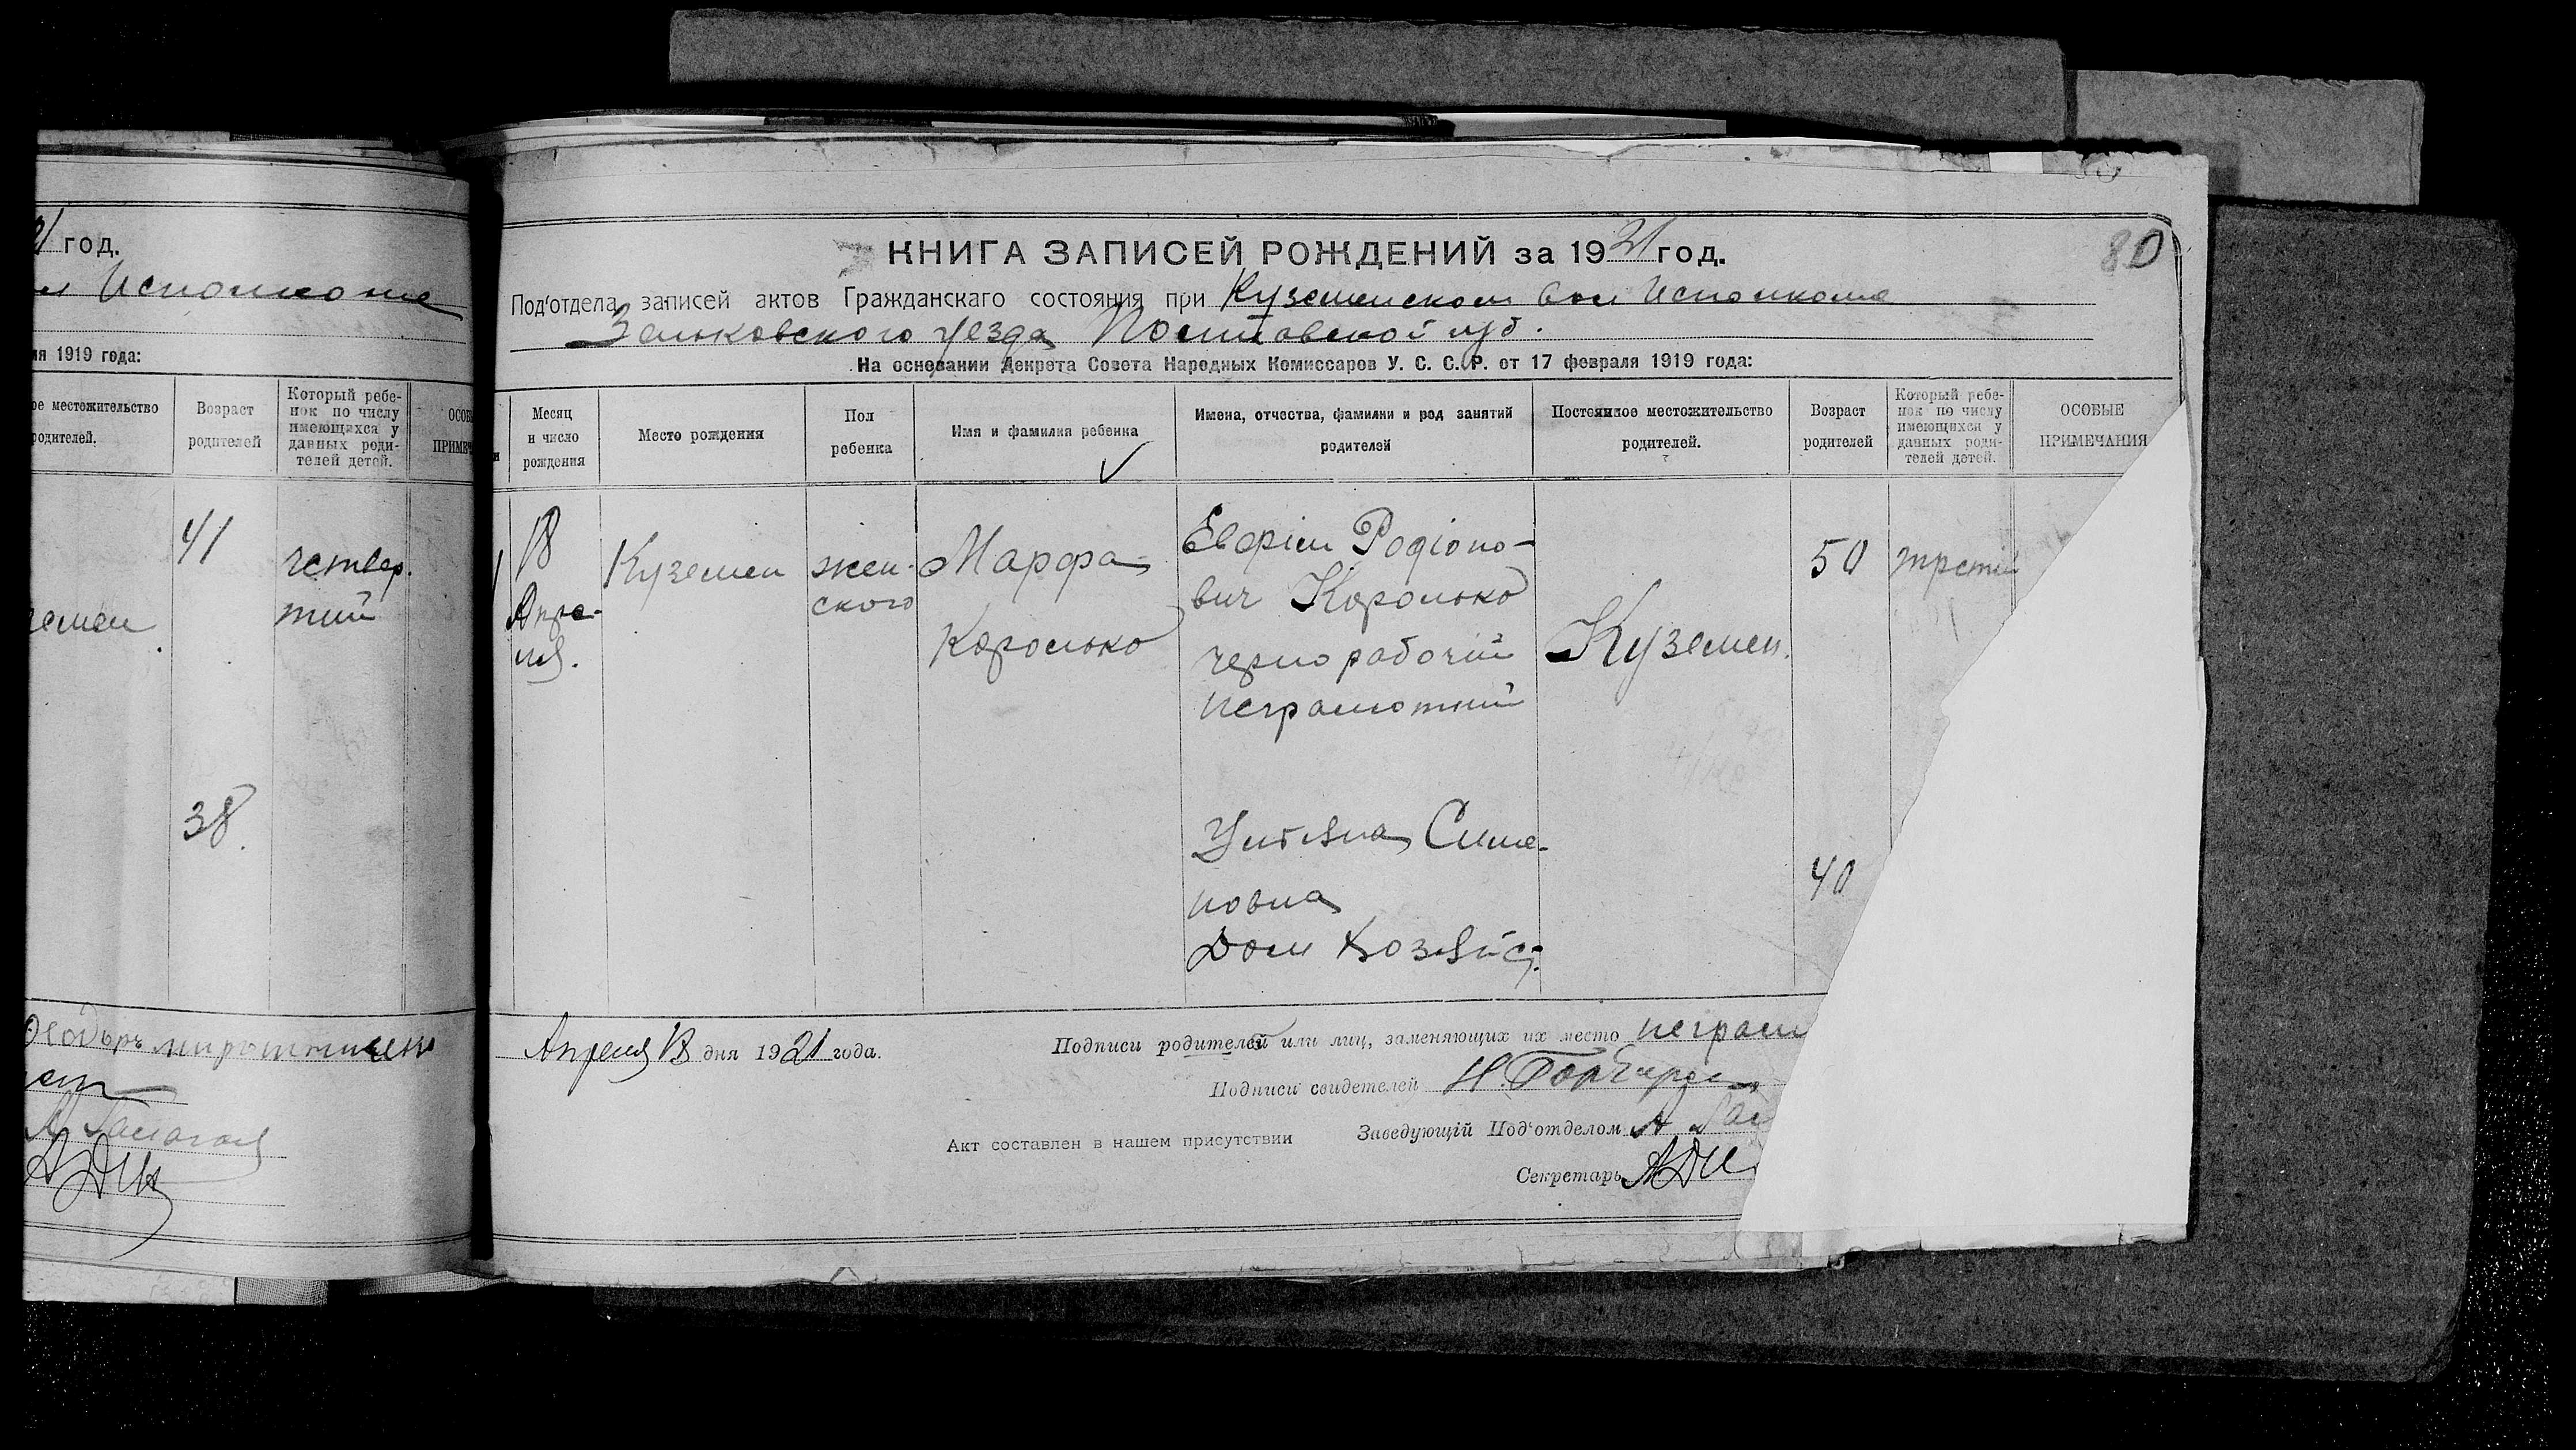 21 год.
Исполкоме
1919 года:
местожительство
родителей.
Возраст
родителей
Который ребе-
нок по числу
имеющихся у
данных роди-
телей детей.
41
четвер.
тий
земен
38.
мирошниченко
КНИГА ЗАПИСЕЙ РОЖДЕНИЙ за 1921 год.
80
Под'отдела записей актов Гражданскаго состояния при Куземенском Вол Исполкоме
Зеньковского уезда Полтавской губ.
На основании Декрета Совета Народных Комиссаров У. С. С. Р. от 17 февраля 1919 года:
Месяц
и число
рождения
Место рождения
Пол
ребенка
Имя и фамилия ребенка
Имена, отчества, фамилии и род занятий
родителей
Постоянное местожительство
родителей.
Возраст
родителей
Который ребе-
нок по числу
имеющихся у
данных роди-
телей детей.
ОСОБЫЕ
ПРИМЕЧАНИЯ
18
Апре-
ля.
Куземен
жен-
ского
Марфа
Королько
Евфрiм Родiоно-
вич Королько
чернорабочiй
неграмотний
Улiяна Симе-
новна
Дом Хозяйс.
Куземен.
50
40
третiй
Апреля 18 дня 1921 года.
Подписи родителей или лиц, заменяющих их место неграм
Подписи свидетелей
Акт составлен в нашем присутствии
Заведующiй Под'отделом А
Секретарь